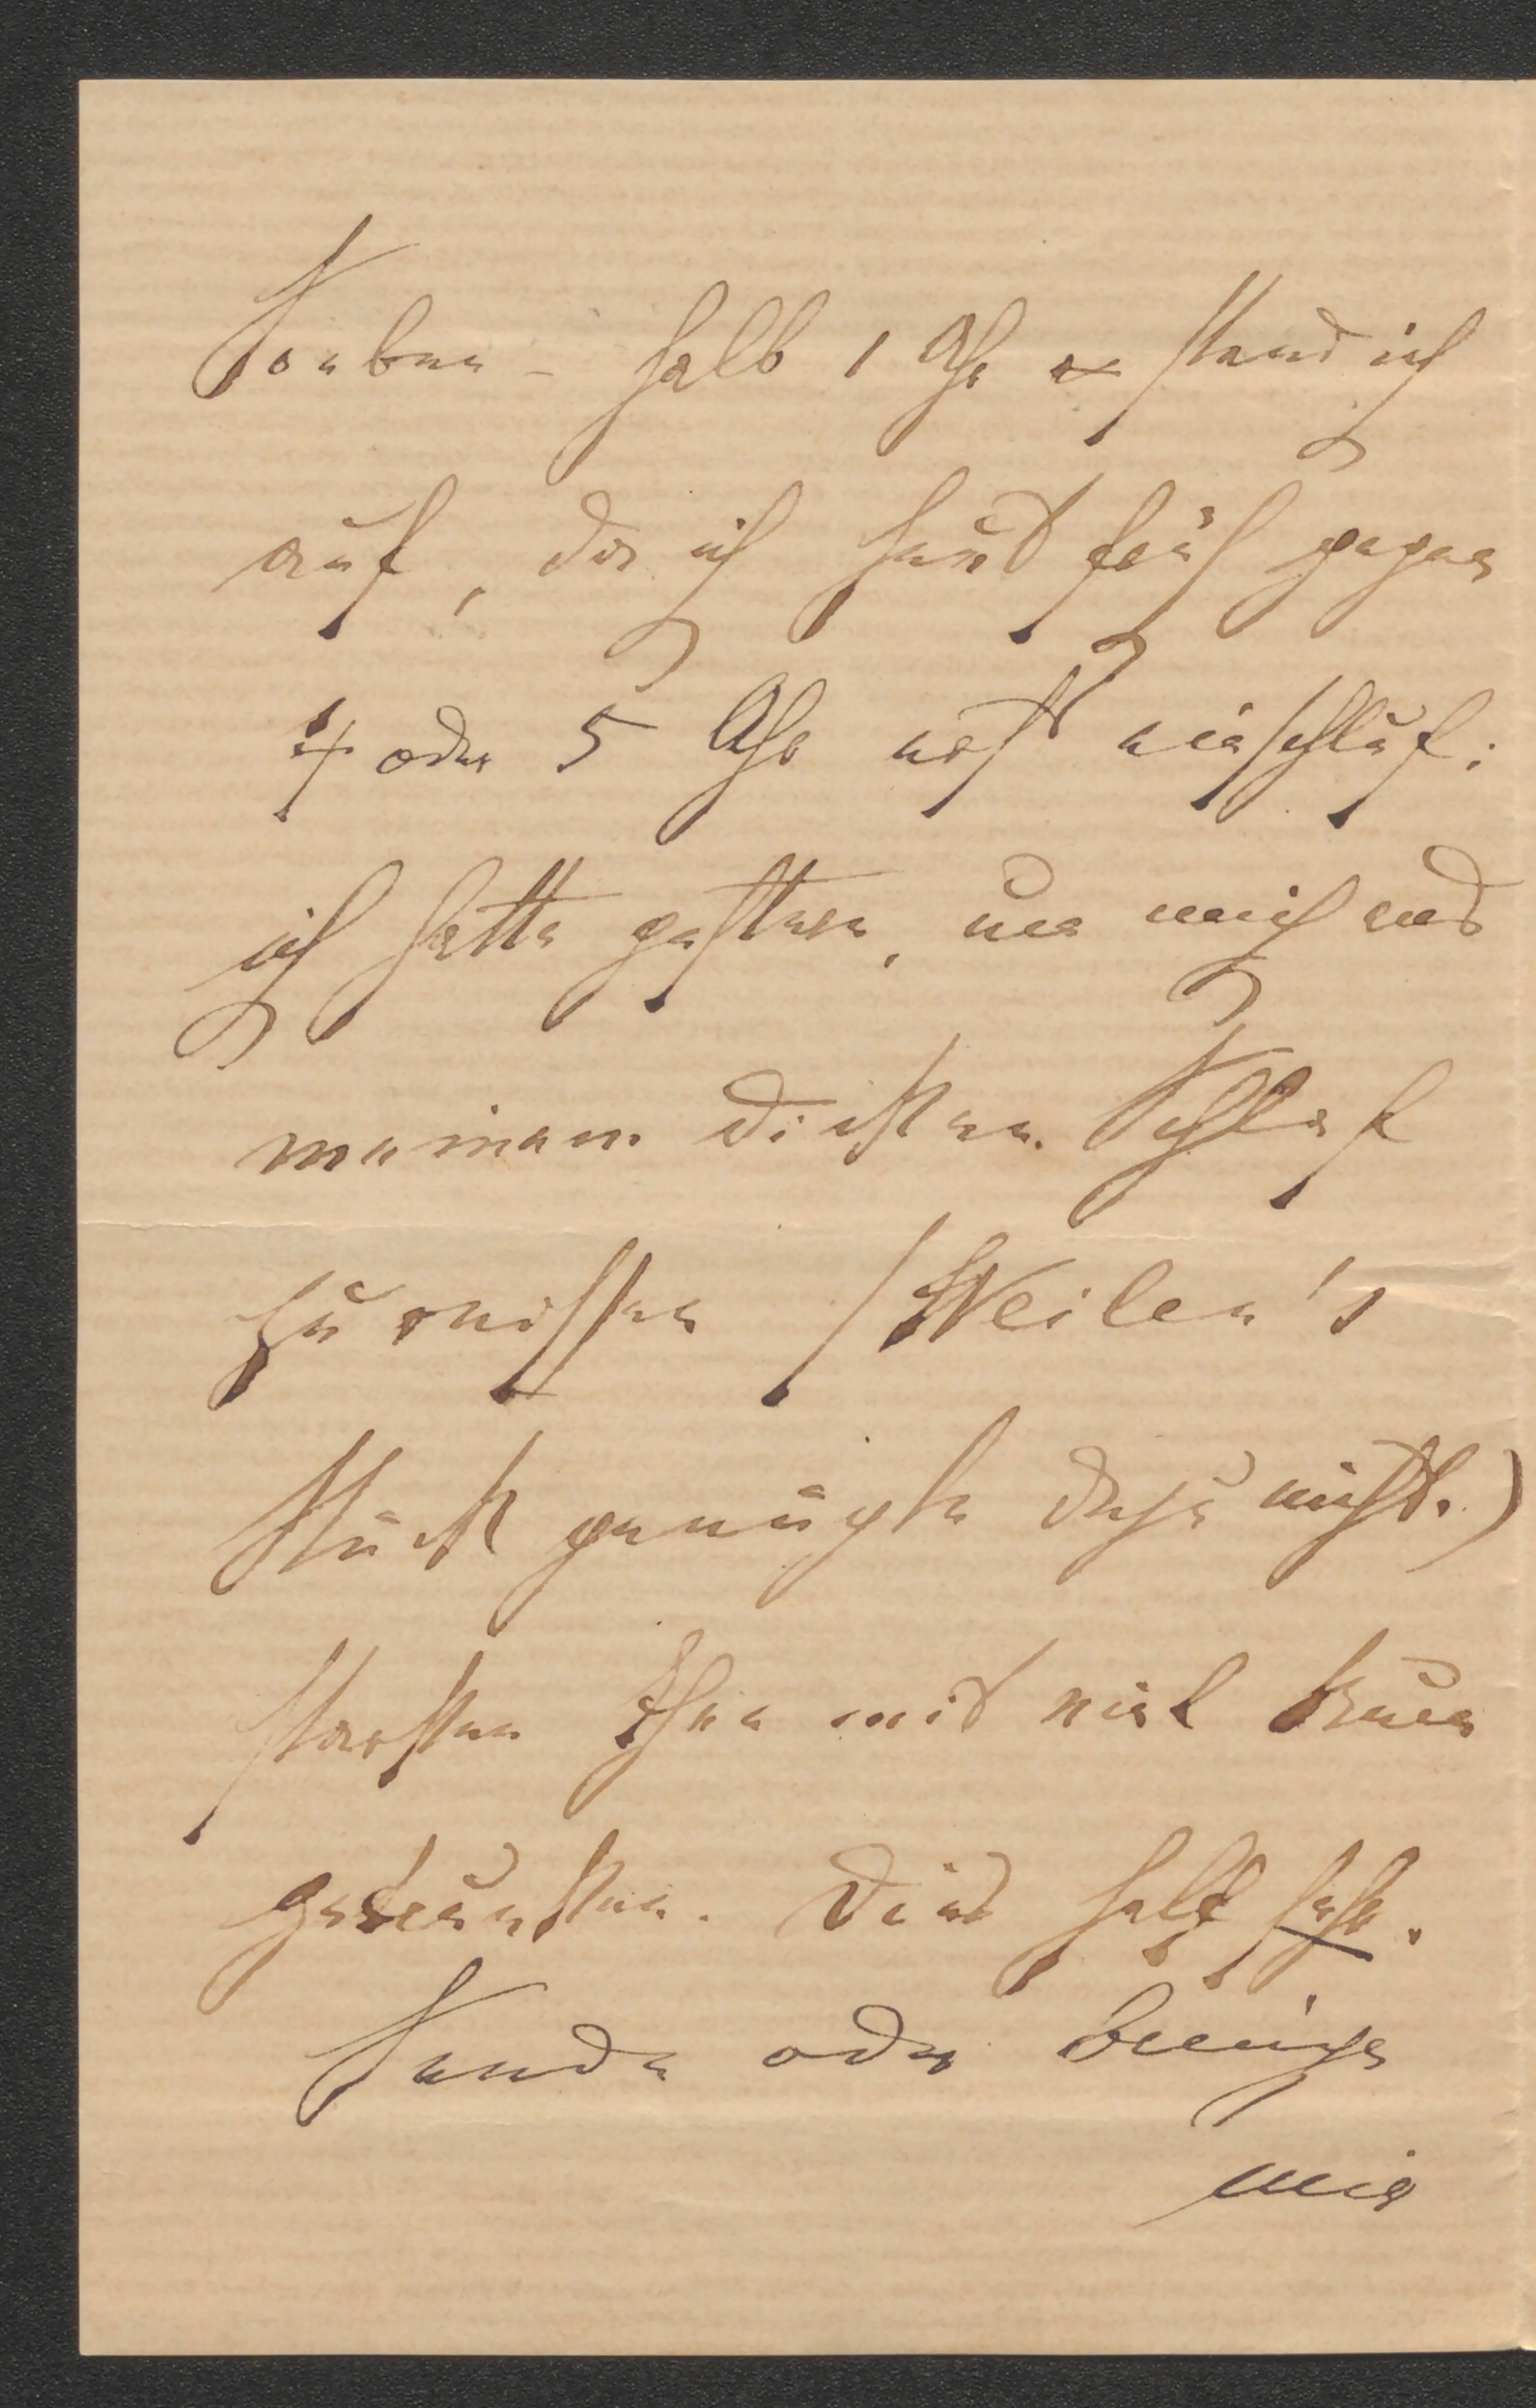 Soeben – halb 1 Uhr stand ich
auf, da ich heut früh gegen
4 oder 5 Uhr erst einschlief;
ich hatte gestern, um mich aus
meinem dicksten Schlaf
zu reißen (Weilen's
Stück genügte dazu nicht.)
starken Thee mit viel Rum
getrunken. Dies half sehr.
Sende oder bringe
mir